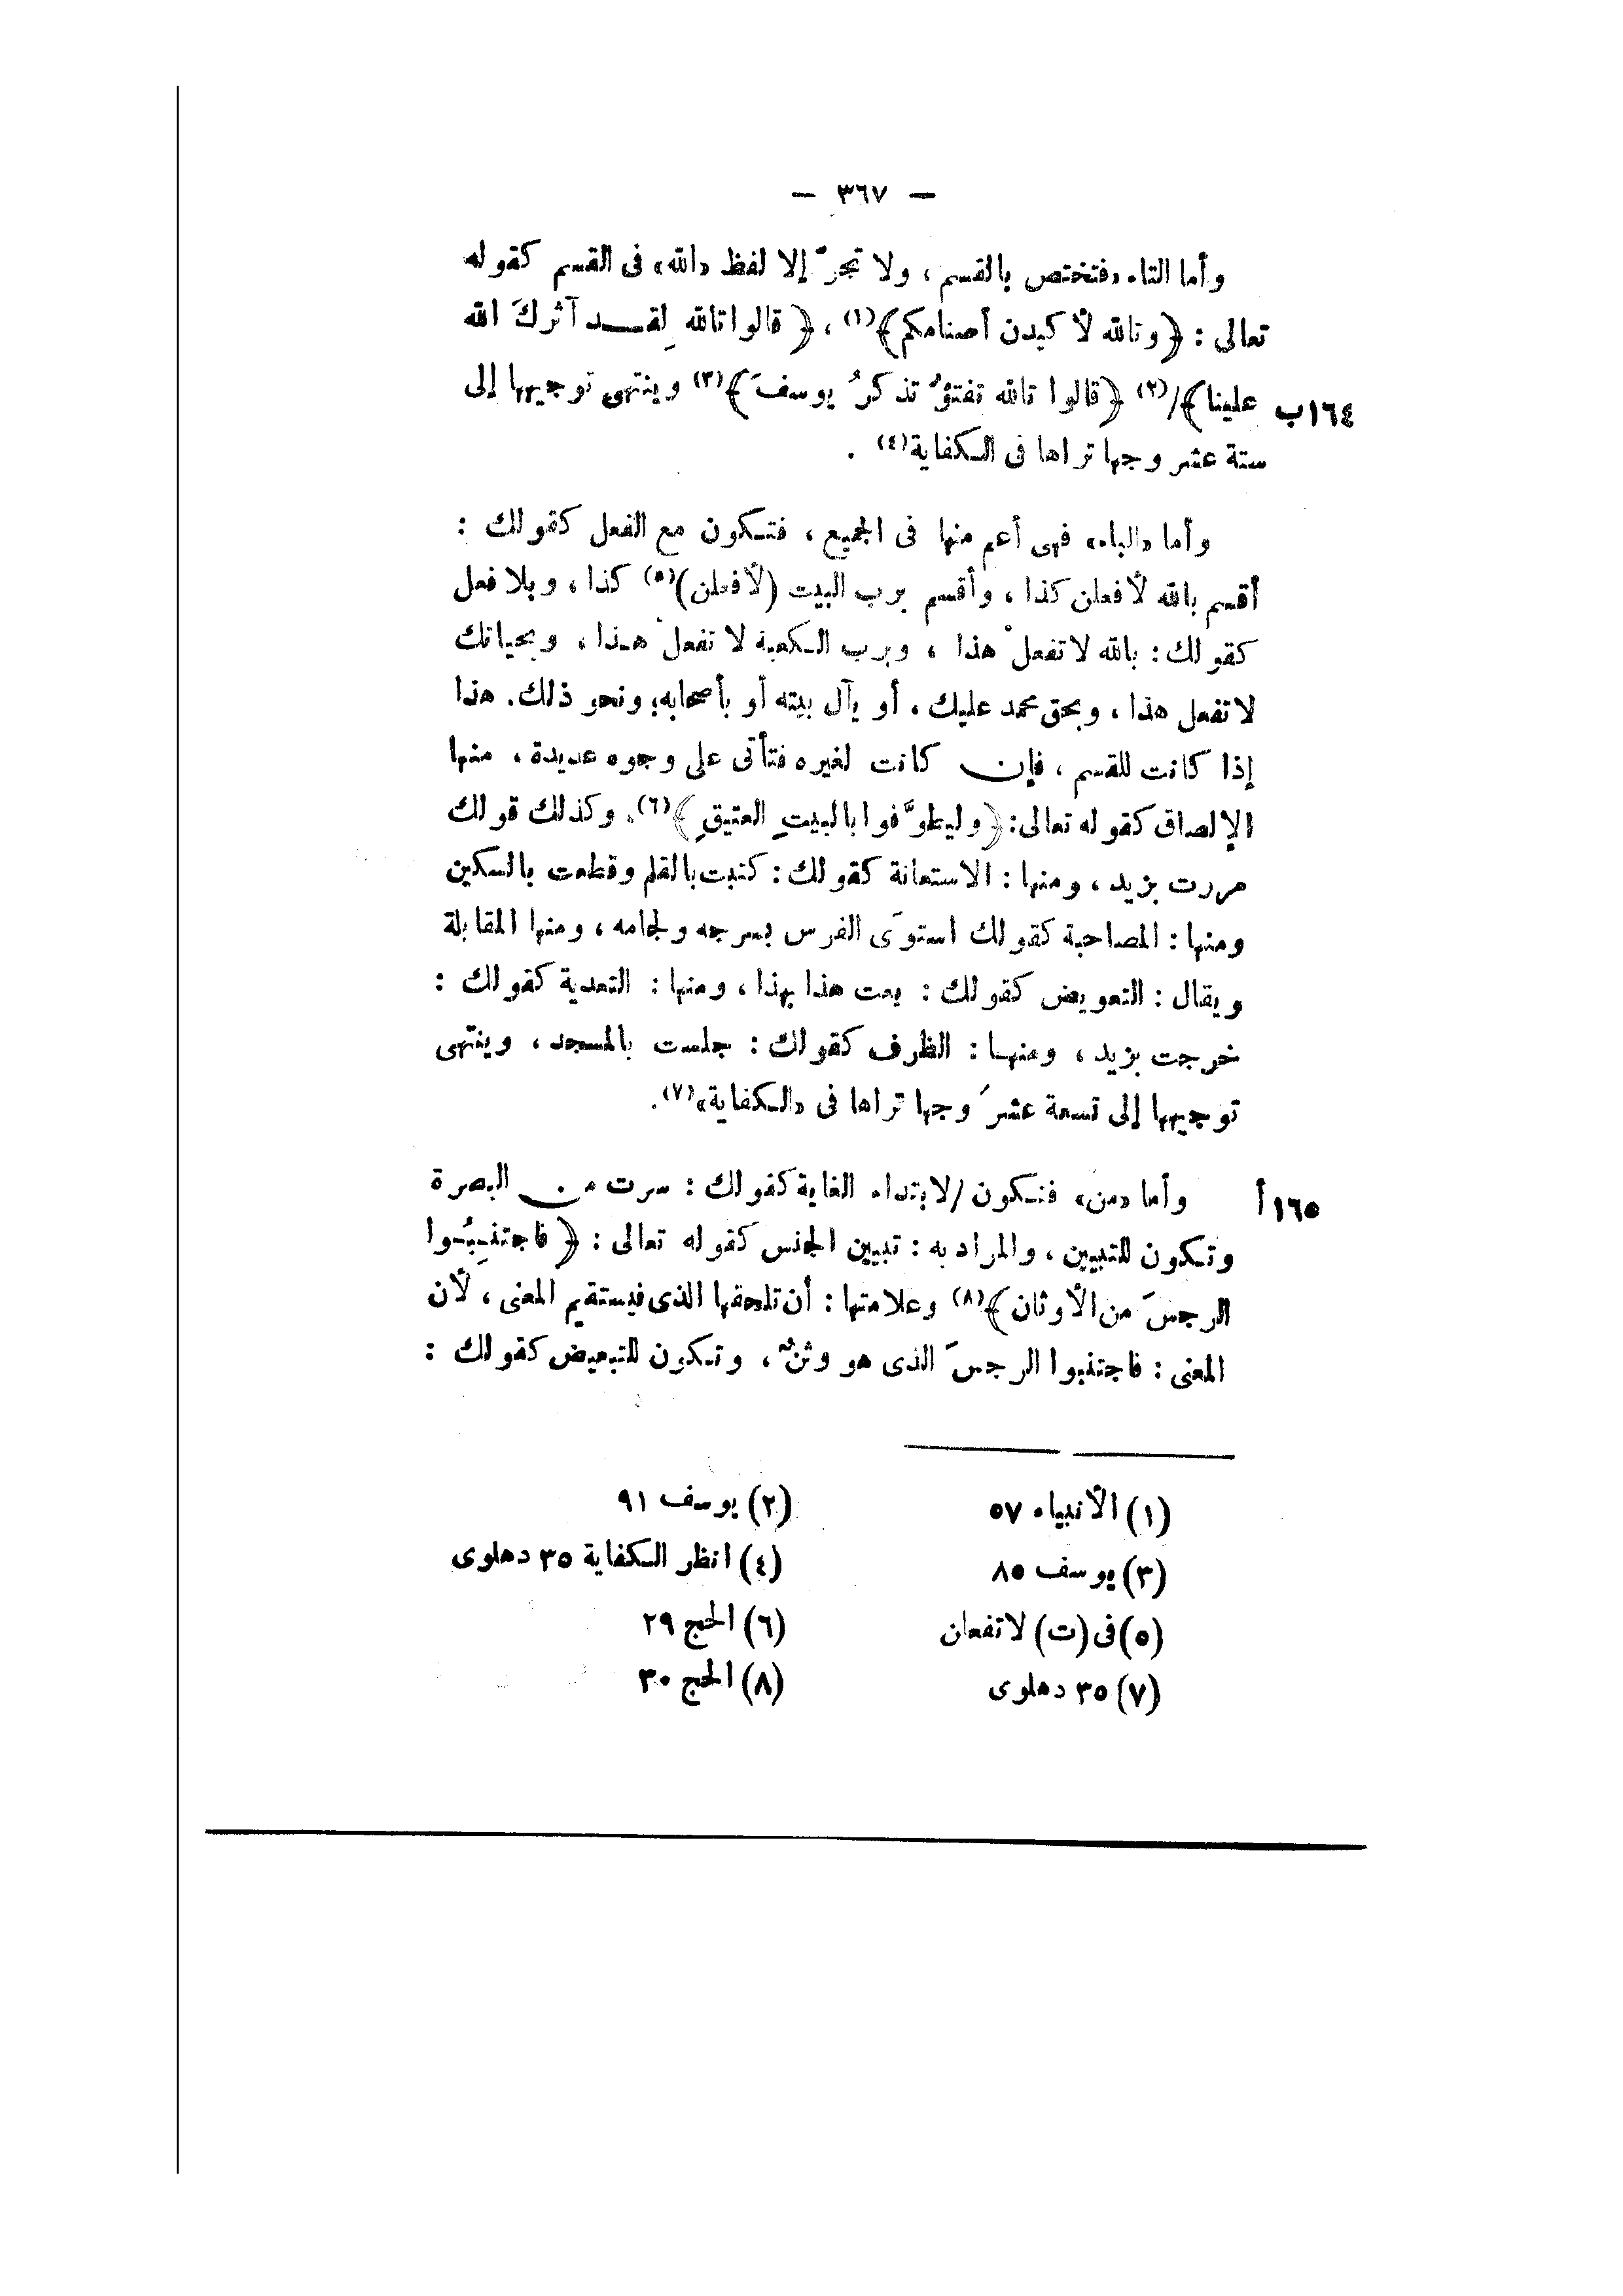 — ٣٦٧ —
وأما التاء «فتختص بالقسم، ولا تجرّ إلا لفظ «الله» فى القسم كقوله
تعالى : ﴿وتالله لأكيدن أصنامكم﴾(١) ، ﴿قالوا تالله لقد آثرك الله
١٦٤ب علينا﴾/(٢) ﴿قالوا تالله تفتؤُ تذكرُ يوسفَ﴾(٣) وينتهى توجيهها إلى
ستة عشر وجها تراها فى الكفاية(٤) .
وأما «الباء» فهى أعم منها فى الجميع ، فتكون مع الفعل كقولك :
أقسم بالله لأفعلن كذا ، وأقسم برب البيت (لأفعلن)(٥) كذا ، وبلا فعل
كقولك : بالله لا تفعلْ هذا ، وبرب الكعبة لا تفعلْ هذا ، وبحياتك
لا تفعل هذا ، وبحق محمد عليك ، أو بآل بيته أو بأصحابه؛ ونحو ذلك. هذا
إذا كانت للقسم ، فإن كانت لغيره فتأتى على وجوه عديدة ، منها
الإلصاق كقوله تعالى: ﴿وليطوَّفوا بالبيتِ العتيقِ﴾(٦). وكذلك قولك
مررت بزيد ، ومنها : الاستعانة كقولك : كتبت بالقلم وقطعت بالسكين
ومنها : المصاحبة كقولك استوَى الفرس بسرجه ولجامه ، ومنها المقابلة
ويقال : التعويض كقولك : بعت هذا بهذا ، ومنها : التعدية كقولك :
خرجت بزيد ، ومنها : الظرف كقولك : جلست بالمسجد ، وينتهى
توجيهها إلى تسعة عشرَ وجها تراها فى «الكفاية»(٧).
١٦٥أ وأما «من» فتكون/لابتداء الغاية كقولك : سرت من البصرة
وتكون للتبيين ، والمراد به : تبيين الجنس كقوله تعالى : ﴿فاجتنِبُوا
الرجسَ من الأوثان﴾(٨) وعلامتها : أن تلحقها الذى فيستقيم المعنى ، لأن
المعنى : فاجتنبوا الرجسَ الذى هو وثنٌ ، وتكون للتبعيض كقولك :
(١) الأنبياء ٥٧ (٢) يوسف ٩١
(٣) يوسف ٨٥ (٤) انظر الكفاية ٣٥ دهلوى
(٥) فى (ت) لا تفعان (٦) الحج ٢٩
(٧) ٣٥ دهلوى (٨) الحج ٣٠